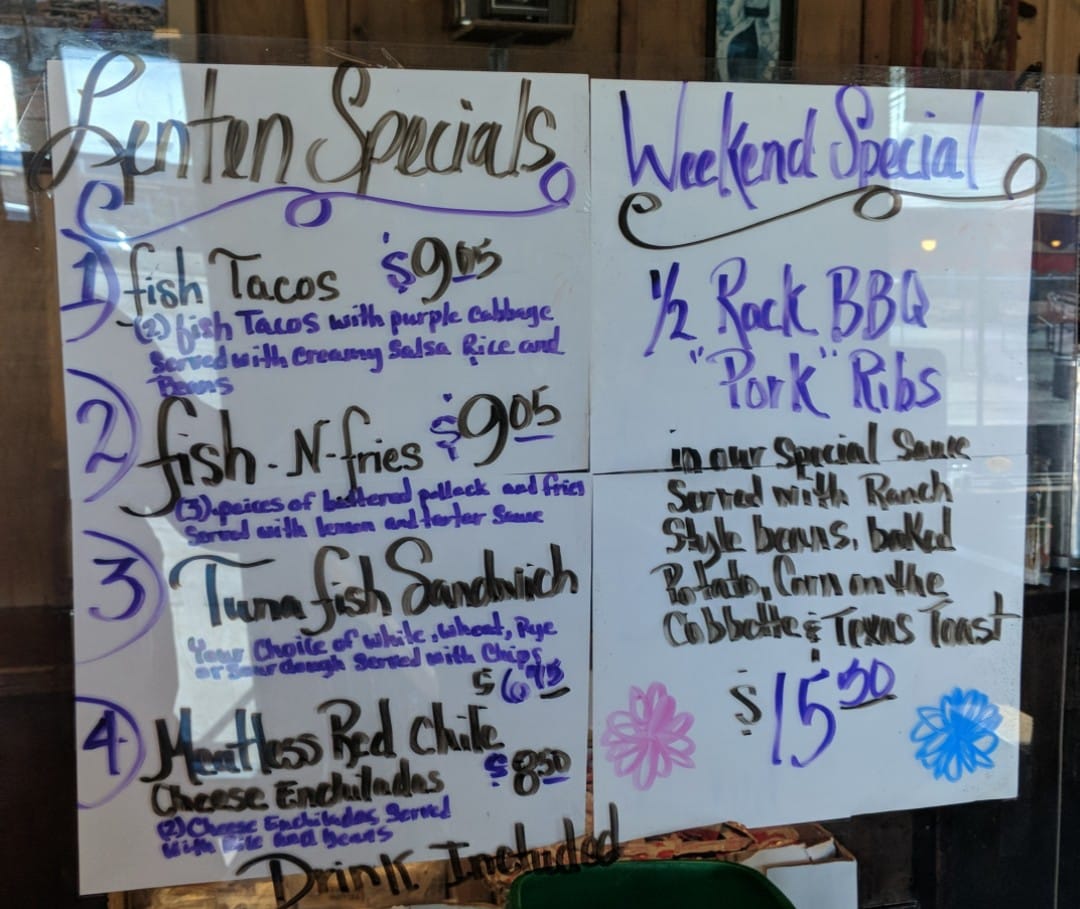 Lenten Specials
1) fish Tacos $9.05
(2) fish Tacos with purple Cabbage
Served with Creamy Salsa Rice and
Beans
2) fish-N-fries $9.05
(3) peices of battered pollack and fries
Served with lemon and tarter Sauce
3) Tuna fish Sandwich
Your Choice of white, wheat, Rye
or Sour dough Served with Chips
$6.75
4) Meatless Red Chile
Cheese Enchiladas $8.50
(2) Cheese Enchiladas Served
With Rice and beans
Drink Included
Weekend Special
1/2 Rack BBQ
"Pork" Ribs
in our Special Sauce
Served with Ranch
Style beans, baked
Potato, Corn on the
Cobbette & Texas Toast
$15.50